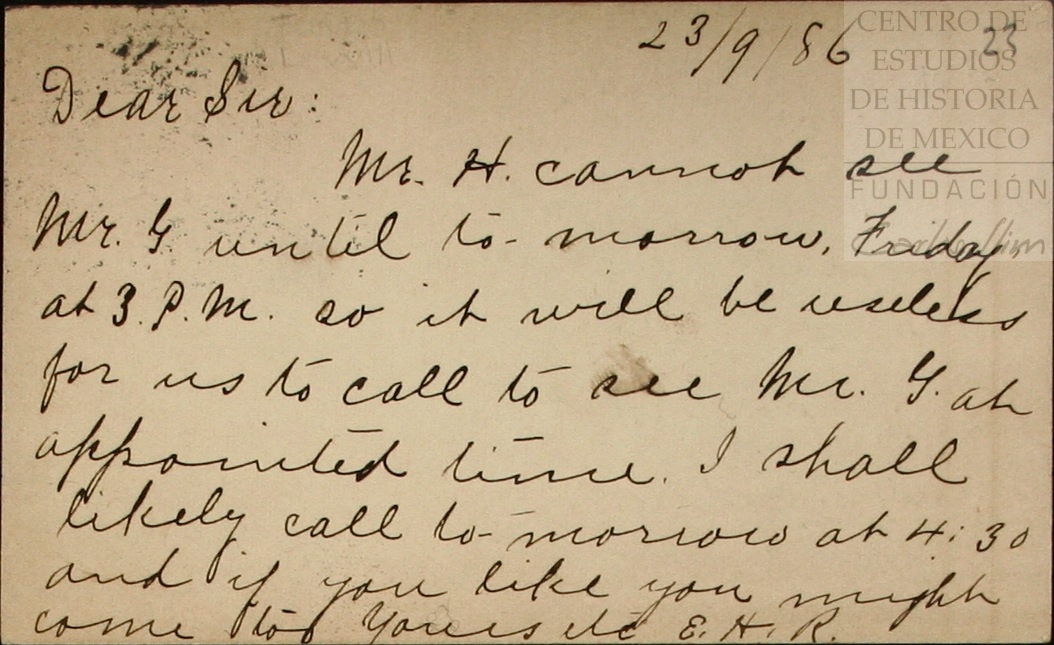 23/9/86
23
CENTRO DE
ESTUDIOS
DE HISTORIA
DE MEXICO
FUNDACIÓN
Dear Sir:
Mr. H. cannot see
Mr. G until to-morrow, Friday,
at 3. P.M. so it will be useless
for us to call to see Mr. G. at
appointed time. I shall
likely call to-morrow at 4:30
and if you like you might
come too Yours etc E. H. R.